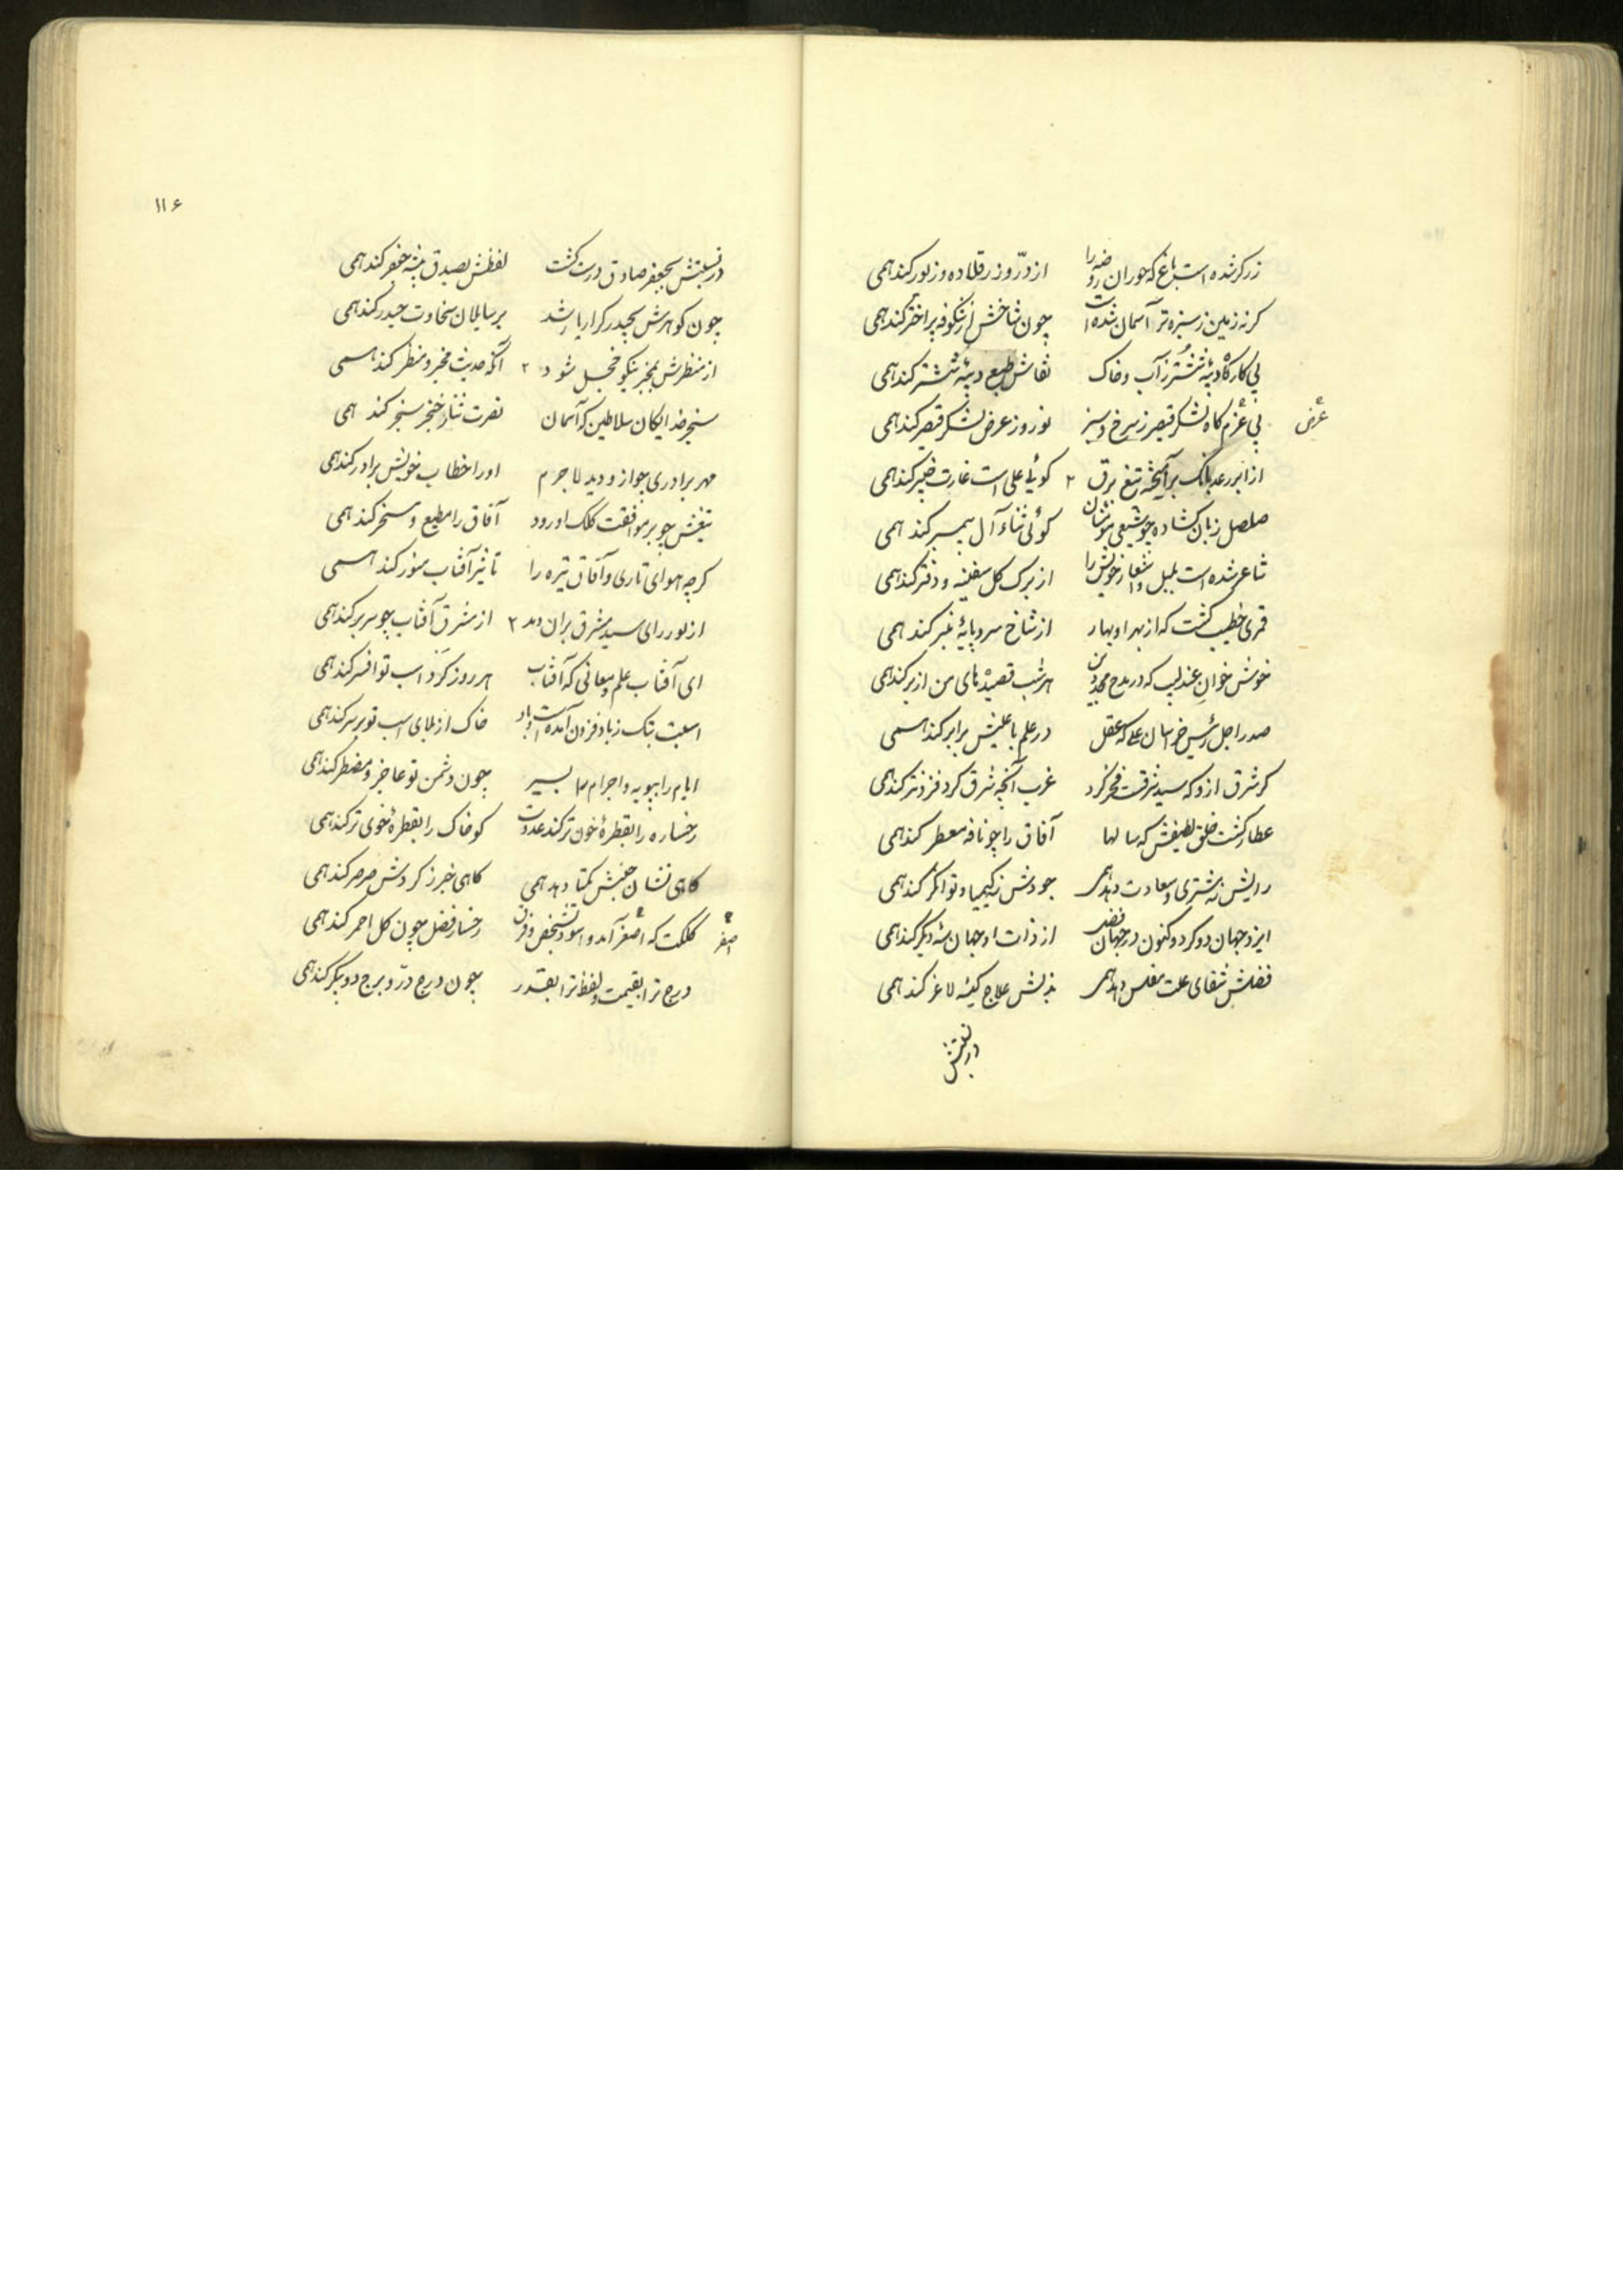 زرکر شده است باغ که حوران روضه را از درّ و زر قلاده و زیور کند همی
کر نه زمین ز سبزه تر آسمان شده است چون شاخش از شکوفه پر اختر کند همی
بی کارگاه دیبه ششتر ز آب و خاک نقاش طبع دیبه ششتر کند همی
بی عزم کاه لشکر قیصر ز سرخ و سبز نوروز عرض لشکر قیصر کند همی
عرض
از ابر رعد بانگ برآهیخته تیغ برق ۲ کوئی علی است غارت خیبر کند همی
صلصل زبان کشاده چو شیعی کوئی ثناء آل پیمبر کند همی
شاعر شده است بلبل و اشعار خویش را از برک کل سفینه و دفتر کند همی
قمری خطیب کشت که از بهر او بهار از شاخ سرو پایهٔ منبر کند همی
خوش خوان عندلیب که در مدح مجد دین هر شب قصیده‌های من از بر کند همی
صدر اجل رئیس خراسان علی که عقل در علم با علیش برابر کند همی
کر شرق ازو که سید شرقست فخر کرد غرب آنچه شرق کرد فزونتر کند همی
عطار کشت خلق لطیفش که سالها آفاق را چو نافه معطر کند همی
رایش نه مشتری و سعادت دهد همی جودش نه کیمیا و توانکر کند همی
ایزد جهان دو کرد و کنون در جهان فضل از ذات او جهان سه دیکر کند همی
فضلش شفای علت مفلس دهد همی بذلش علاج کیسهٔ لاغر کند همی
در نسبتش
۱۱۶
در نسبتش بجعفر صادق درست کشت لفظش بصدق پیشه جعفر کند همی
چون کوهرش بحیدر کرار باز شد بر سایلان سخاوت حیدر کند همی
از منظرش بمخبر نیکو خجل شود ۲ آنکه حدیث مخبر و منظر کند همی
سنجر خدایکان سلاطین که آسمان نصرت نثار خنجر سنجر کند همی
مهر برادری چو ازو دید لاجرم او را خطاب خویش برادر کند همی
تیغش چو بر موافقت کلک او رود آفاق را مطیع و مسخر کند همی
کر چه هوای تاری و آفاق تیره را تاثیر آفتاب منور کند همی
از نور رای سید مشرق بران دمد ۲ از مشرق آفتاب چو سر بر کند همی
ای آفتاب علم و معانی که آفتاب هر روز کرد اسب تو افسر کند همی
اسبت بتک ز باد فزون آمده است و باد خاک از برای اسب تو بر سر کند همی
ایام را بپویه و اجرام را بسیر چون دشمن تو عاجز و مضطر کند همی
رخساره را بقطرهٔ خون تر کند عدوت کو خاک را بقطرهٔ خوی تر کند همی
کاهی نشان جنبش نکبا دهد همی کاهی خبر ز کردش صرصر کند همی
کلکت که اصغر آمد و اسود بشخص و فرق رخسار فضل چون کل احمر کند همی
اصفر
درج ترا بقیمت و لفظ ترا بقدر چون درج درّ و برج دو پیکر کند همی